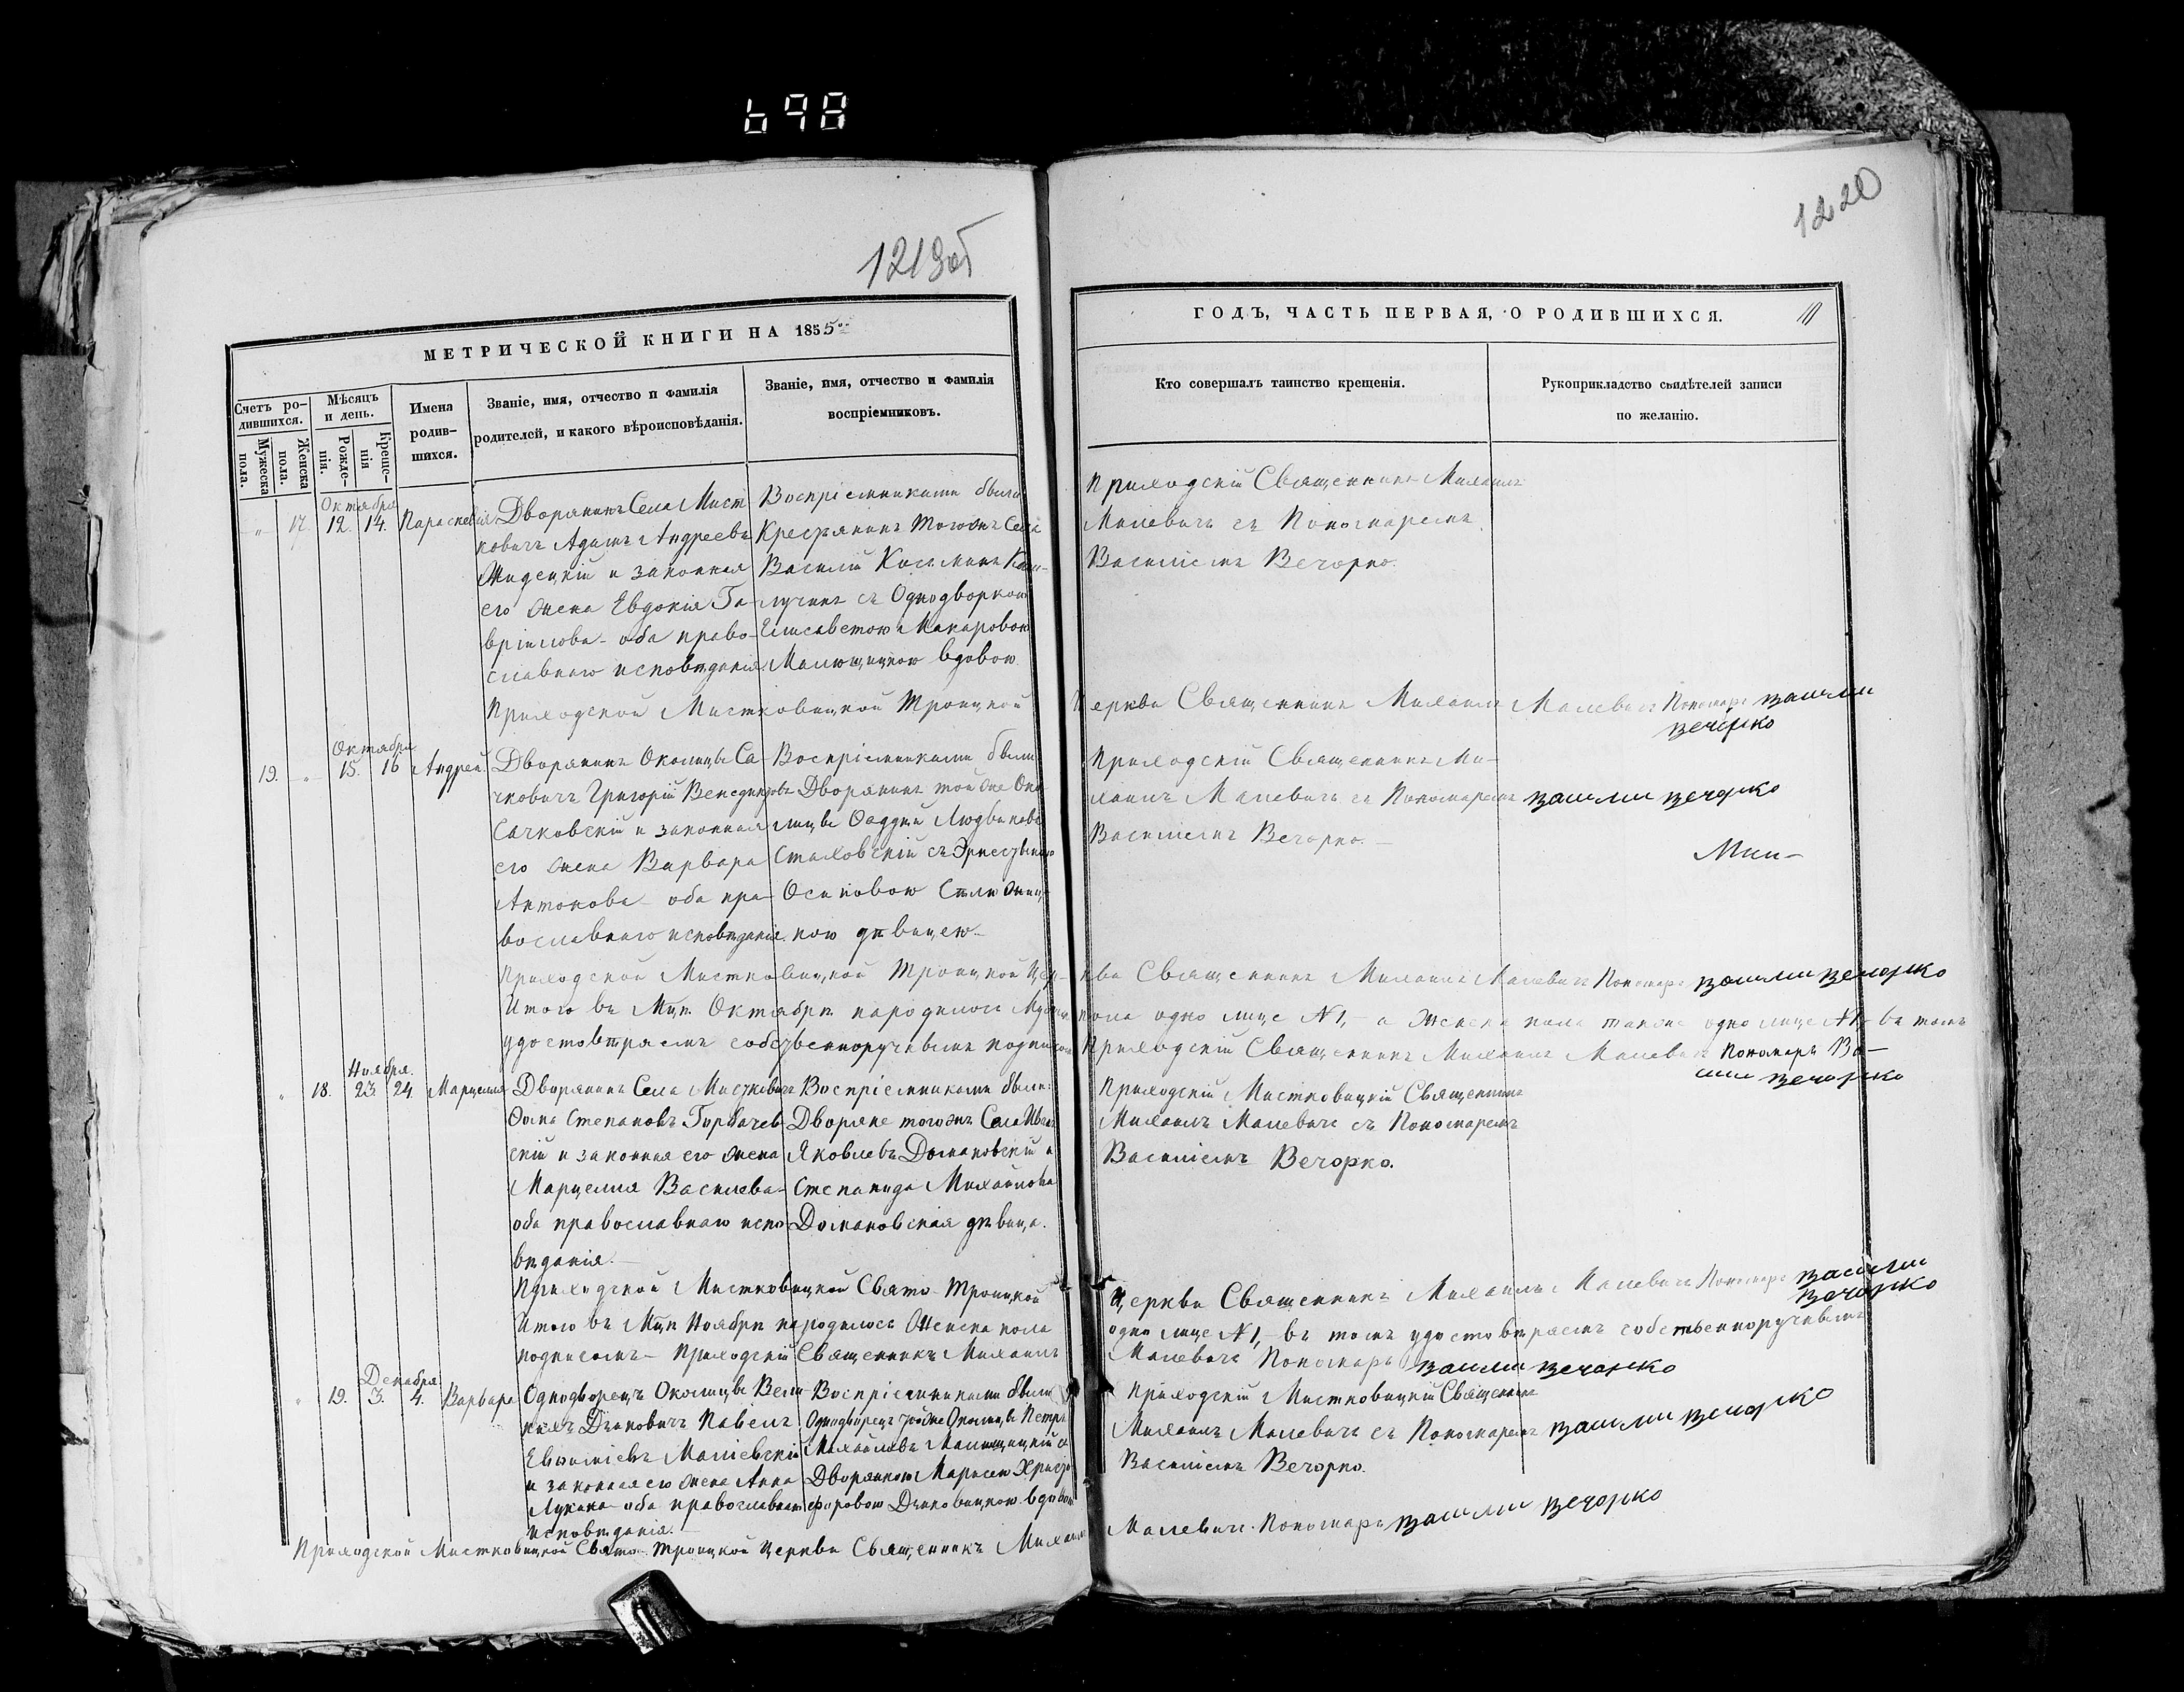 698
1219об
1220
МЕТРИЧЕСКОЙ КНИГИ НА 1855
ГОДЪ, ЧАСТЬ ПЕРВАЯ, О РОДИВШИХСЯ.
Счетъ ро-
дившихся.
Мужеска
пола.
Женска
пола.
Мѣсяцъ
и день.
Рожде-
нія.
Креще-
нія
Имена
родив-
шихся.
Званіе, имя, отчество и фамилія
родителей, и какого вѣроисповѣданія.
Званіе, имя, отчество и фамилія
воспріемниковъ.
Кто совершалъ таинство крещенія.
Рукоприкладство свидѣтелей записи
по желанію.
Октября
17. 12. 14. Параскевія
Дворянинъ Села Мист
ковичъ Адамъ Андреевъ
и законная
его жена Евдокія Га-
вріилова - оба право-
славнаго исповѣданія
Воспріемниками были
Крестьянинъ тогожъ Села
Василій
съ Однодворкою
Елисаветою Макаровою
вдовою
Приходскій Священникъ Михаилъ
Малевичъ съ Пономаремъ
Василіемъ Вечорко.
Приходской Мистковицкой Троицкой
Церкви Священникъ Михаилъ Малевичъ Пономарь Василий
Вечорко
Октября
19. " 15. 16 Андрей.
Дворянинъ Околицы Са-
чковичъ Григорій Венедиктовъ
Сачковскій и законная
его жена Варвара
Антонова - оба пра-
вославнаго исповѣданія.
Воспріемниками были
Дворянинъ той же Око
лицы Фаддей Людвиковъ
Стаховскій съ
Осиповою
кою дѣвицею -
Приходскій Священникъ Ми-
хаилъ Малевичъ съ Пономаремъ Василий Вечорко
Василіемъ Вечорко. -
Приходской Мистковицкой Троицкой Цер-
кви Священникъ Михаилъ Малевичъ Пономарь Василий Вечорко
Итого въ Мцѣ Октябрѣ народилось Мужеск
пола одно лице №1, - а Женска пола также одно лице №1 - въ томъ
удостовѣряемъ собственноручнымъ подписомъ
Приходскій Священникъ Михаилъ Малевичъ Пономарь Ва-
силий Вечорко
Ноября.
" 18. 23. 24. Марцелія
Дворянинъ Села Мистковичъ
Фома Степановъ Горбачев
скій и законная его жена
Марцелія Васильева -
оба православнаго испо
вѣданія. -
Воспріемниками были:
Дворяне тогожъ Села
Яковлевъ Домановскій и
Степанида Михайлова
Домановская дѣвица.
Приходскій Мистковицкій Священникъ
Михаилъ Малевичъ съ Пономаремъ
Василіемъ Вечорко.
Приходской Мистковицкой Свято Троицкой
Церкви Священникъ Михаилъ Малевичъ Пономарь Василий
Вечорко
Итого въ Мцѣ Ноябрѣ народилось Женска пола
одно лице №1, - въ томъ удостовѣряемъ собственноручнымъ
подписомъ - Приходскій Священникъ Михаилъ
Малевичъ Пономарь Василий Вечорко
Декабря
" 19. 3. 4. Варвара
Однодворецъ Околицы Вели
кихъ Дъяковичъ Павелъ
Малиевскій
и законная его жена Анна
Лукина оба православнаго
исповѣданія. -
Воспріемниками были
Однодворецъ той же Околицы Петръ
Михайловъ
Дворянкою Христо
форовою Дъяковицкою вдовою
Приходскій Мистковицкій Священникъ
Михаилъ Малевичъ съ Пономаремъ Василий Вечорко
Василіемъ Вечорко.
Приходской Мистковицкой Свято Троицкой Церкви Священникъ Михаилъ
Малевичъ. Пономарь Василий Вечорко